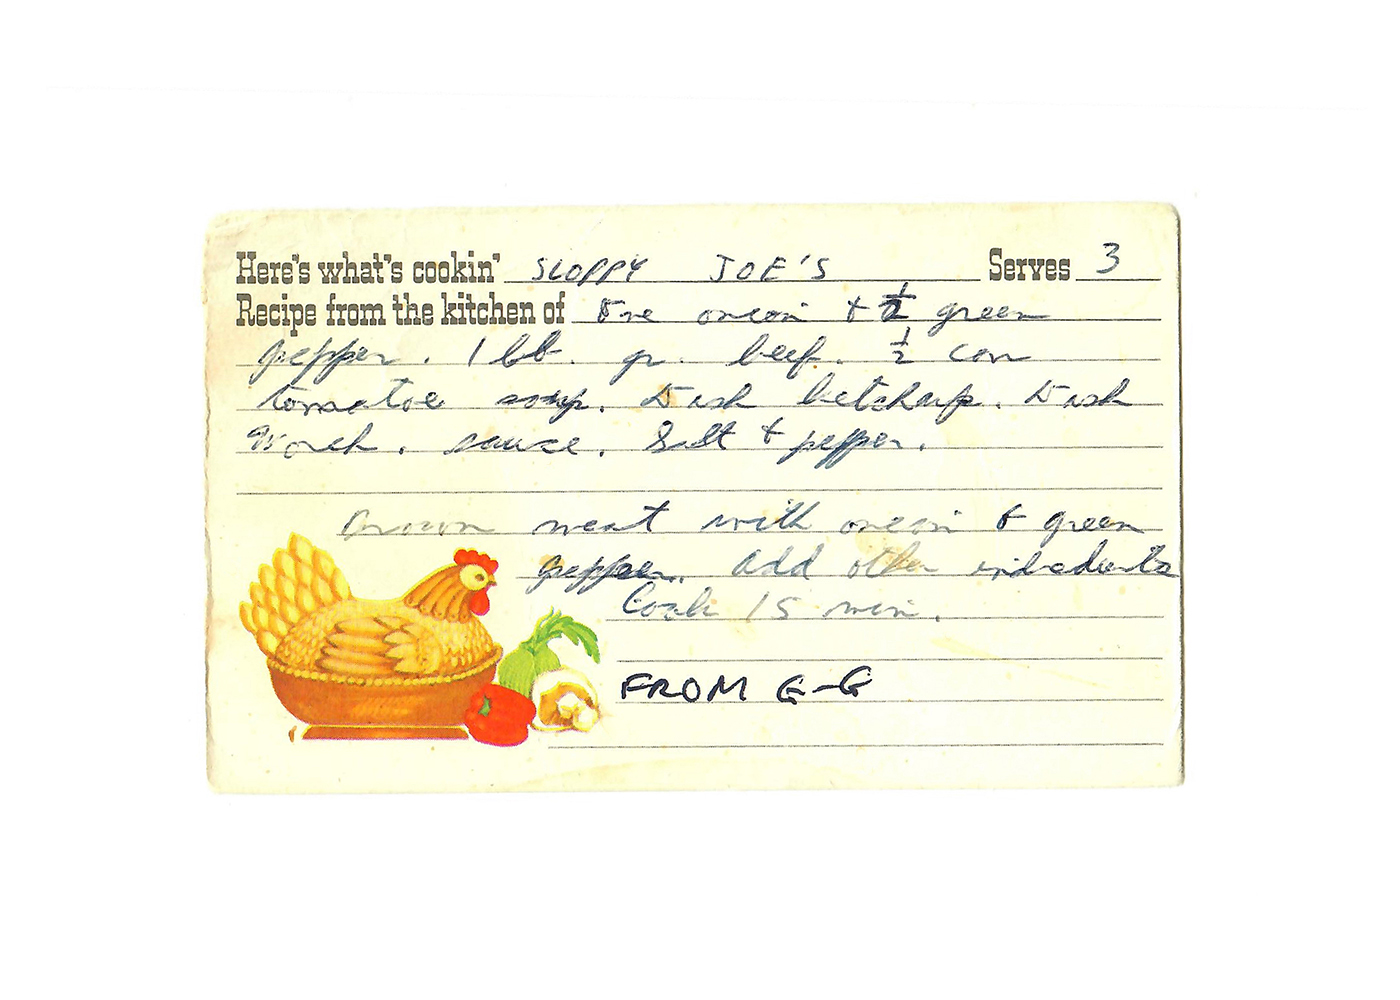 Here's what's cookin' SLOPPY JOE'S Serves 3
Recipe from the kitchen of One onion & 1/2 green
pepper. 1 lb. gr. beef. 1/2 can
tomatoe soup. Dash ketchup. Dash
Worch. sauce. Salt & pepper.
Brown meat with onion & green
pepper. Add other indredients
Cook 15 min.
FROM G-G